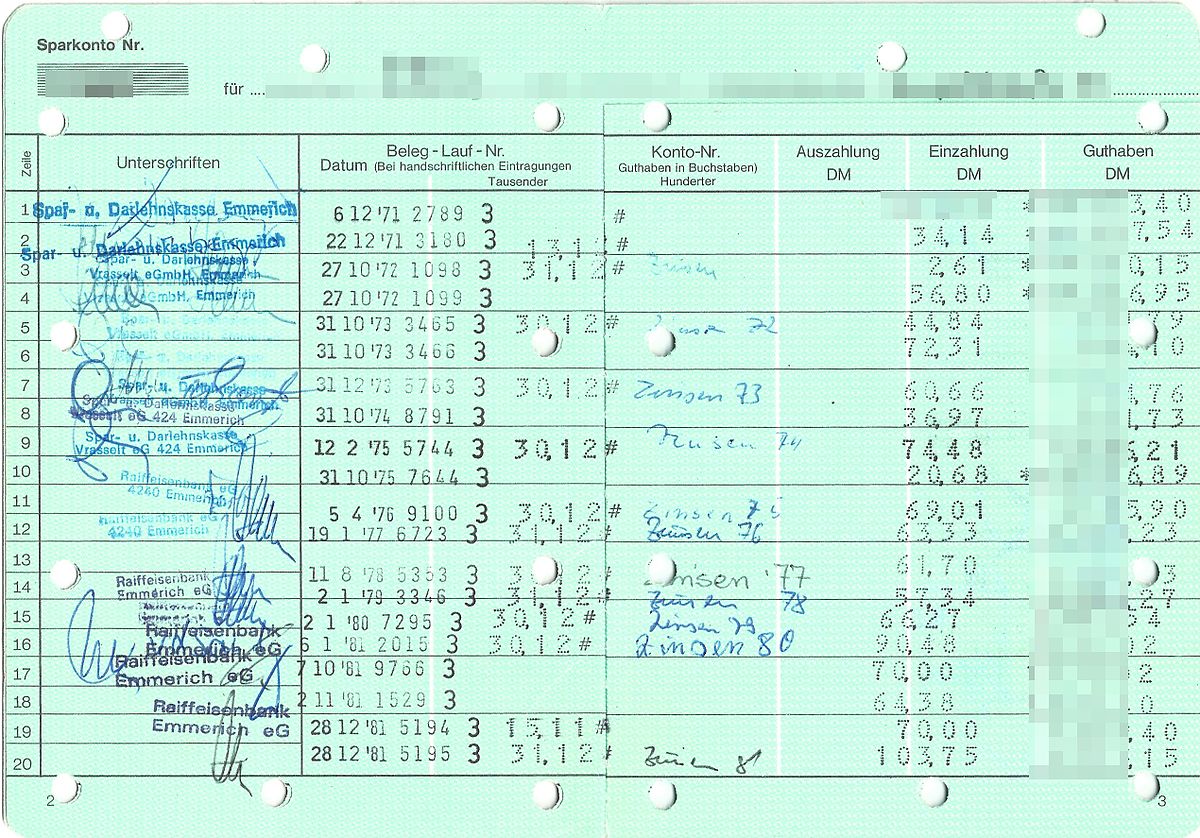 Sparkonto Nr.
für ....
Zeile Unterschriften Datum Beleg - Lauf - Nr. (Bei handschriftlichen Eintragungen Tausender Konto-Nr. Guthaben in Buchstaben) Hunderter Auszahlung DM Einzahlung DM Guthaben DM
1 Spar- u. Darlehnskasse Emmerich 6 12 '71 2789 3 # * 3,40
2 Spar- u. Darlehnskasse Emmerich 22 12 '71 3180 3 13,12 # 34,14 * 7,54
3 Spar- u. Darlehnskasse Vrasselt eGmbH, Emmerich 27 10 '72 1098 3 31,12 # Zinsen 2,61 * 0,15
4 Vrasselt eGmbH, Emmerich 27 10 '72 1099 3 56,80 * 6,95
5 31 10 '73 3465 3 30,12 # 72 44,84 79
6 31 10 '73 3466 3 72,31
7 Spar- u. Darlehnskasse Vrasselt eGmbH, Emmerich 31 12 '73 5763 3 30,12 # Zinsen 73 60,66 ,76
8 Spar- u. Darlehnskasse Vrasselt eG 424 Emmerich 31 10 '74 8791 3 36,97 ,73
9 Spar- u. Darlehnskasse Vrasselt eG 424 Emmerich 12 2 '75 5744 3 30,12 # Zinsen 74 74,48 ,21
10 Raiffeisenbank eG 4240 Emmerich 31 10 '75 7644 3 20,68 * ,89
11 5 4 '76 9100 3 30,12 # Zinsen 75 69,01 5,90
12 Raiffeisenbank eG 4240 Emmerich 19 1 '77 6723 3 31,12 # Zinsen 76 63,33 ,23
13 11 8 '78 5353 3 # Zinsen '77 61,70 3
14 Raiffeisenbank Emmerich eG 2 1 '79 3346 3 31,12 # Zinsen 78 57,34 ,27
15 2 1 '80 7295 3 30,12 # Zinsen 79 66,27 54
16 Raiffeisenbank Emmerich eG 6 1 '81 2015 3 30,12 # Zinsen 80 90,48 2
17 Raiffeisenbank Emmerich eG 7 10 '81 9766 3 70,00 2
18 2 11 '81 1529 3 64,38 0
19 Raiffeisenbank Emmerich eG 28 12 '81 5194 3 15,11 # 70,00 ,40
20 28 12 '81 5195 3 31,12 # Zinsen 81 103,75 ,15
2
3